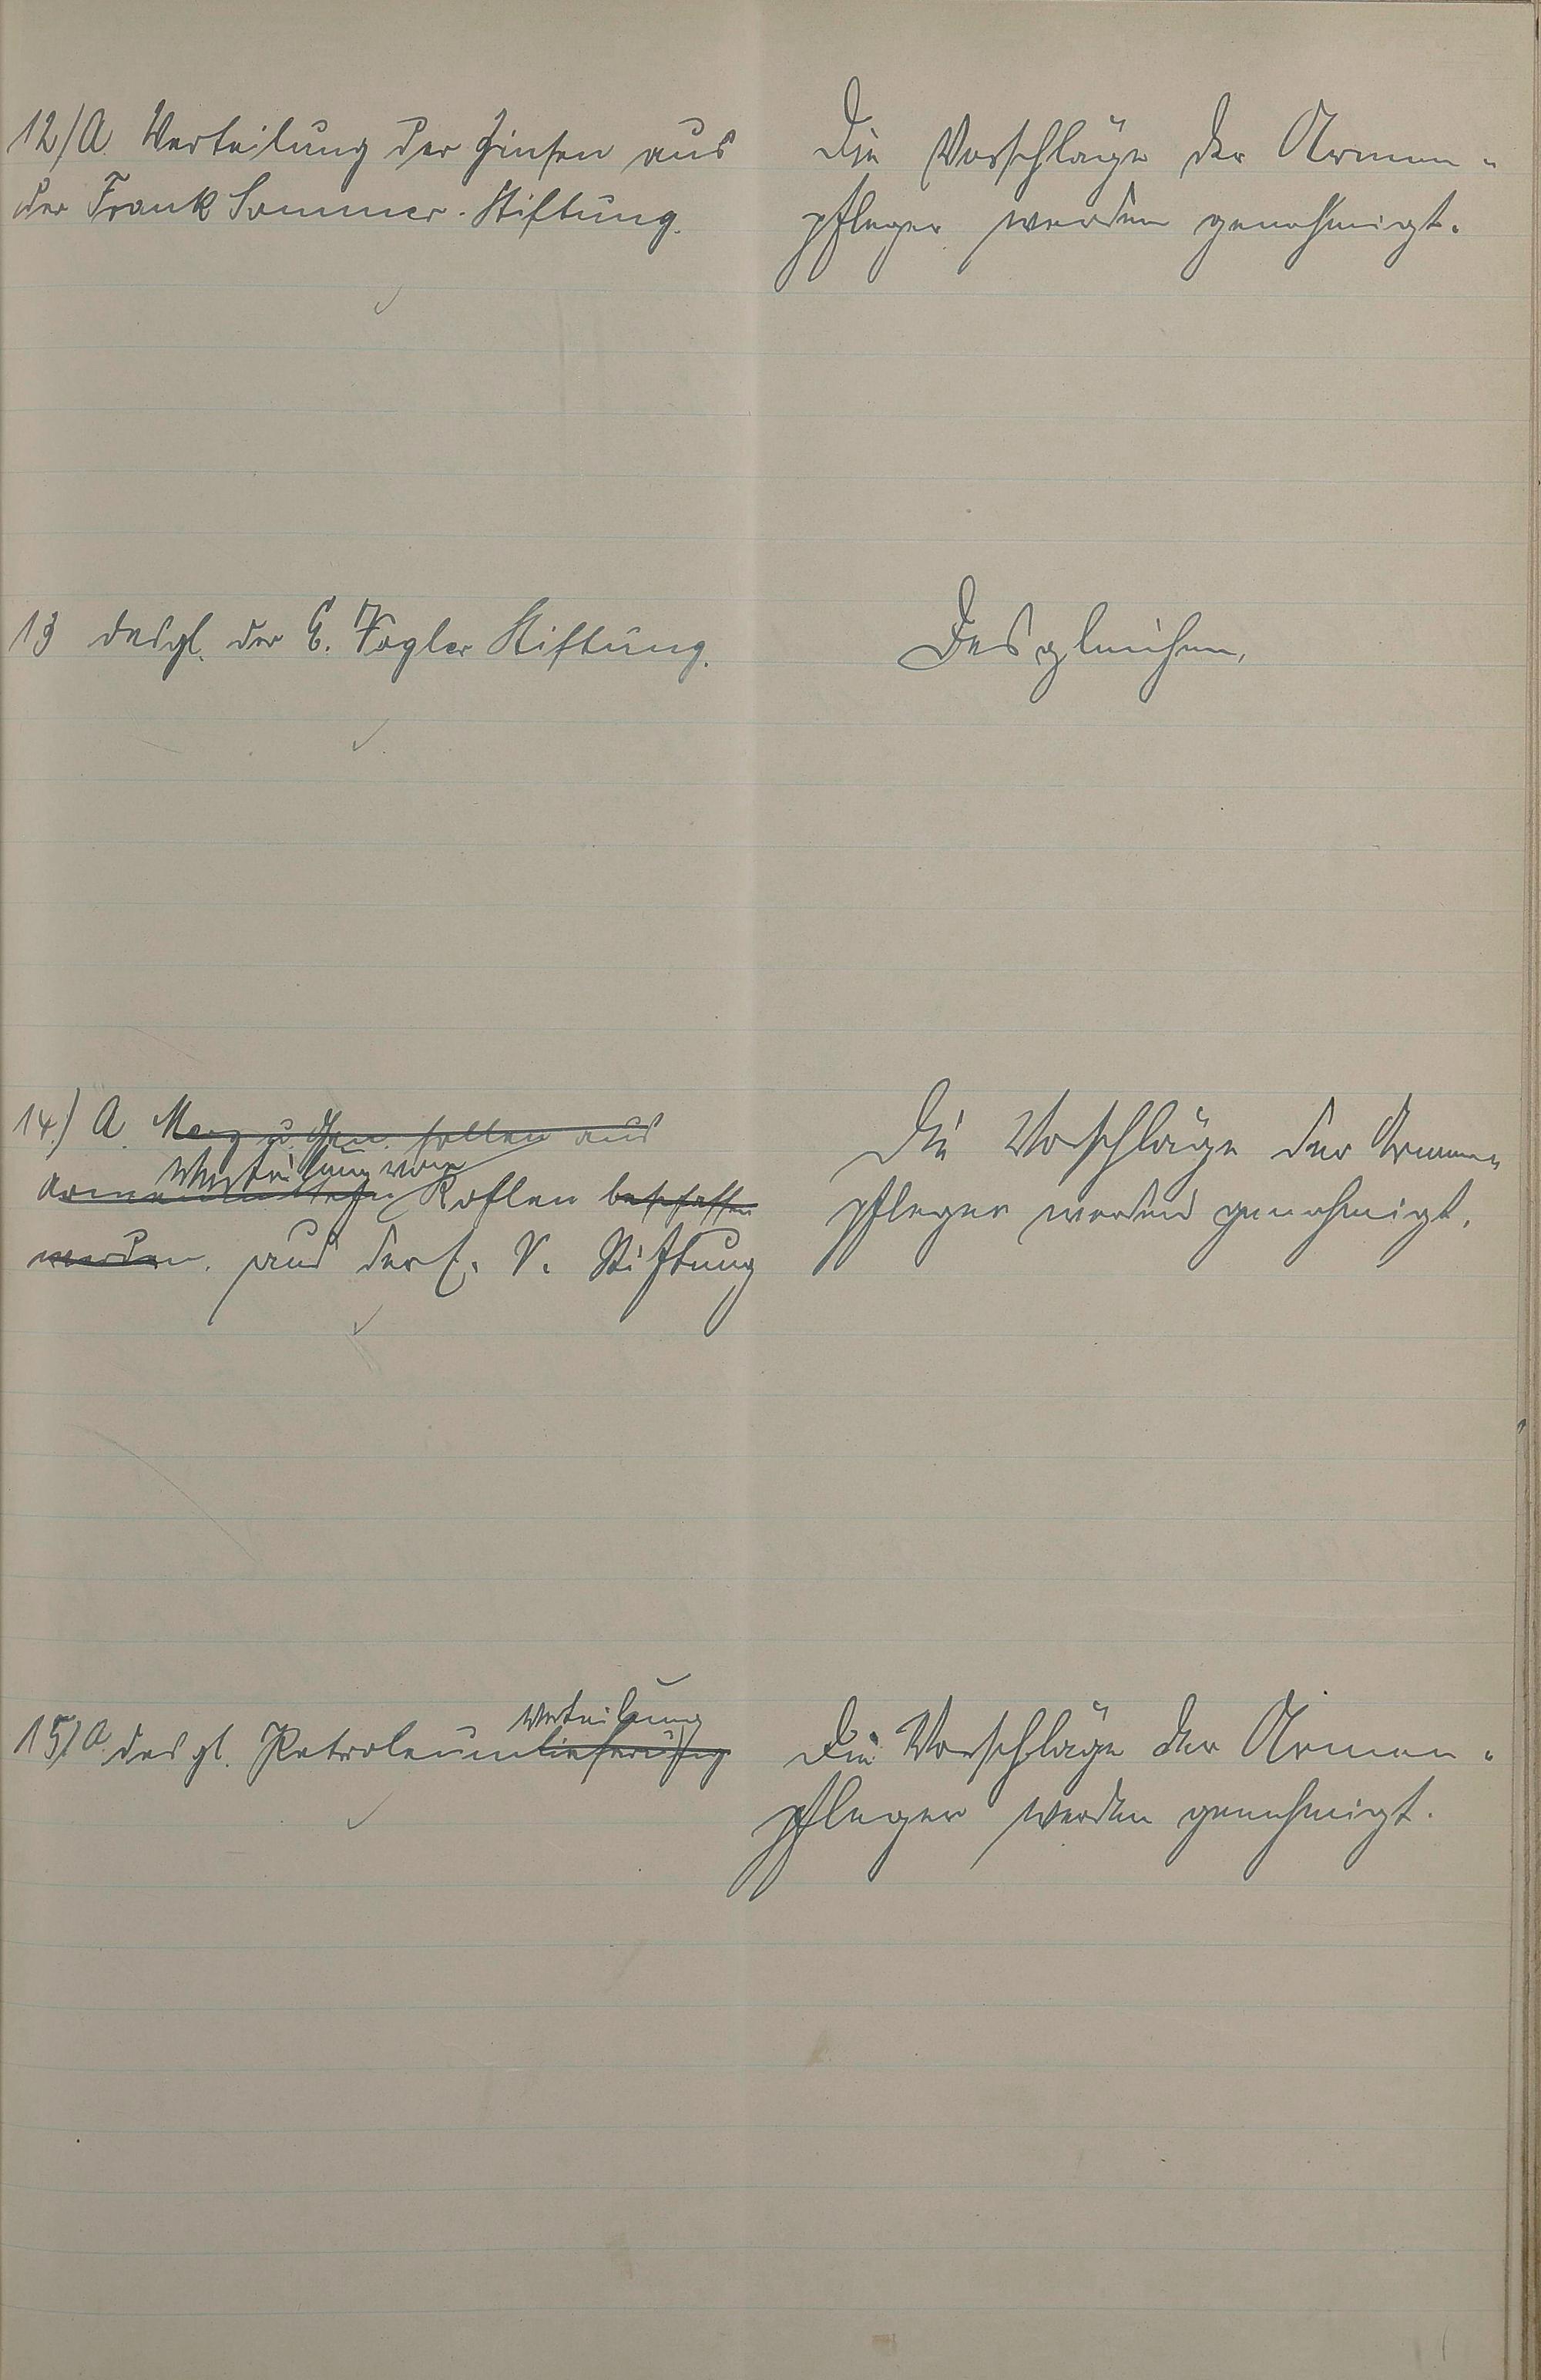 12/A. Verteilung der Zinsen aus
der Frank Sommer-Stiftung.
Die Vorschläge der Armen-
pfleger werden genehmigt.
13 desgl. der E. Vogler Stiftung.
Desgleichen.
14.) A. sollen aus
Verteilung von
Kohlen beschaffen
werden. aus der E. V. Stiftung
Die Vorschläge der Armen-
pfleger werden genehmigt.
Verteilung
15/A. desgl. Petroleumlieferung
Die Vorschläge der Armen-
pfleger werden genehmigt.